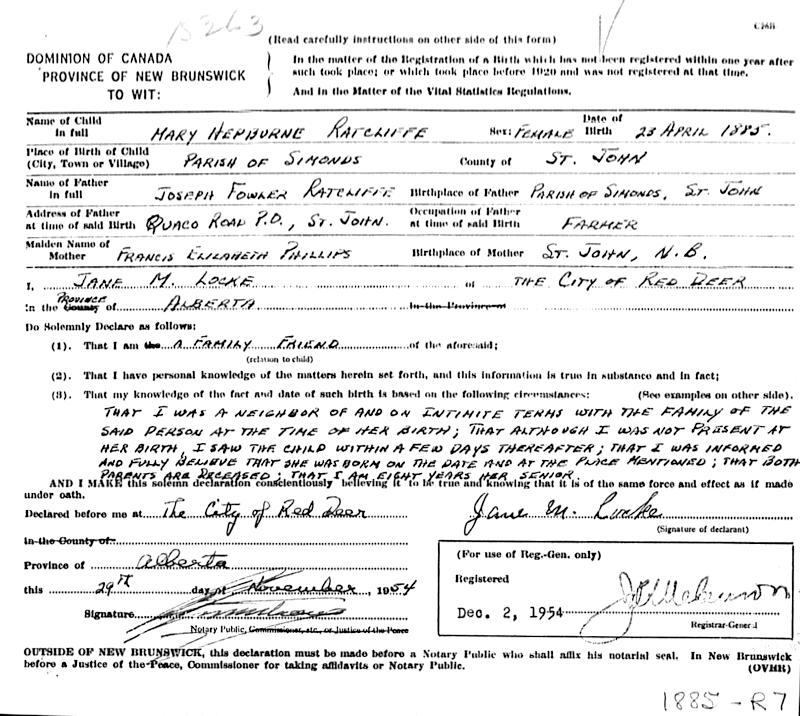 15263
C26B
(Read carefully instructions on other side of this form)
DOMINION OF CANADA
PROVINCE OF NEW BRUNSWICK
TO WIT:
In the matter of the Registration of a Birth which has not been registered within one year after
such took place; or which took place before 1920 and was not registered at that time.
And in the Matter of the Vital Statistics Regulations.
Name of Child in full MARY HEPBURNE RATCLIFFE Sex: FEMALE Date of Birth 23 APRIL 1885.
Place of Birth of Child (City, Town or Village) PARISH OF SIMONDS County of ST. JOHN
Name of Father in full JOSEPH FOWLER RATCLIFFE Birthplace of Father PARISH OF SIMONDS, ST. JOHN
Address of Father at time of said Birth QUACO ROAD P.O., ST. JOHN. Occupation of Father at time of said Birth FARMER
Maiden Name of Mother FRANCIS ELIZABETH PHILLIPS Birthplace of Mother ST. JOHN, N.B.
I, JANE M. LOCKE of THE CITY OF RED DEER
in the County PROVINCE of ALBERTA in the Province of
Do Solemnly Declare as follows:
(1). That I am the A FAMILY FRIEND of the aforesaid;
(relation to child)
(2). That I have personal knowledge of the matters herein set forth, and this information is true in substance and in fact;
(3). That my knowledge of the fact and date of such birth is based on the following circumstances: (See examples on other side).
THAT I WAS A NEIGHBOR OF AND ON INTIMITE TERMS WITH THE FAMILY OF THE
SAID PERSON AT THE TIME OF HER BIRTH; THAT ALTHOUGH I WAS NOT PRESENT AT
HER BIRTH, I SAW THE CHILD WITHIN A FEW DAYS THEREAFTER; THAT I WAS INFORMED
AND FULLY BELIEVE THAT SHE WAS BORN ON THE DATE AND AT THE PLACE MENTIONED; THAT BOTH
PARENTS ARE DECEASED; THAT I AM EIGHT YEARS HER SENIOR.
AND I MAKE this solemn declaration conscientiously believing it to be true and knowing that it is of the same force and effect as if made
under oath.
Declared before me at The City of Red Deer Jane M. Locke
(Signature of declarant)
in the County of:
Province of Alberta
this 29th day of November, 1954
Signature
Notary Public, Commissioner, etc., or Justice of the Peace
(For use of Reg.-Gen. only)
Registered
Dec. 2, 1954
Registrar-General
OUTSIDE OF NEW BRUNSWICK, this declaration must be made before a Notary Public who shall affix his notarial seal. In New Brunswick
before a Justice of the Peace, Commissioner for taking affidavits or Notary Public. (OVER)
1885-R7